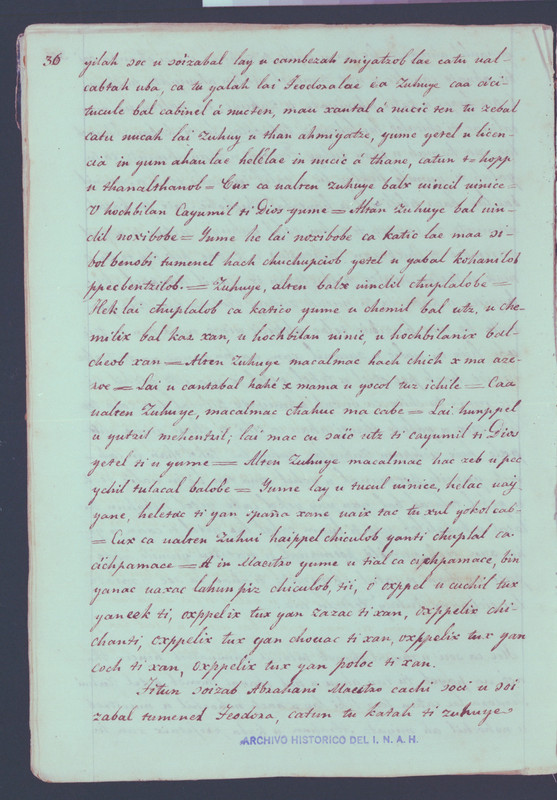 36
yilah soc u sòizabal lay u cambezah miyatzob lae catu ual-
cabtah uba, ca tu yalah lai Teodoralae ca Zuhuye caa cíci-
tucule bal cabinel á nucten, mau xantal á nucic ten tu xebal
catu nucah lai Zuhuy u than ahmiyatze, yume yetel u licen-
cia in yum ahaulae helèlae in nucic á thane, catun t=hopp
u thanalthanob = Cux ca ualten zuhuye balx uincil uinice =
V hochbilan Cayumil ti Dios yume = Altàn Zuhuye bal uin-
clil noxibobe = Yume he lai noxibobe ca katic lae maa si-
bolbenobi tumenel hach chuchupciob yetel u yabal kohanilob
ppecbentzilob. = Zuhuye, alten balx uinclil chuplalobe =
Hek lai chuplalob ca katico yume u chemil bal utz, u che-
milix bal kaz xan, u hochbilan uinic, u hochbilanix bal-
cheob xan = Alten Zuhuye macalmac hach chich x ma aze-
roe = Lai u cantabal hahé x mama u yocol tuz ichile = Caa
ualten Zuhuye, macalmac chahuc ma cabe = Lai hunppel
u yutzil mehentzil; lai mac cu saïo utz ti cayumil ti Dios
yetel ti u yume = Alten Zuhuye macalmac hac zeb u pec
ychil tulacal balobe = Yume lay u tucul uinice, helac uay
yane, heletac ti yan España xane uaix tac tu xul yokol cab-
= Cux ca ualten Zuhui haippel chiculob yanti chuplal ca-
cichpamace = A in Maestro yume u tial ca cichpamace, bin
yanac uaxac lahun piz chiculob, tii, ó oxppel u cuchil tux
yaneek ti, oxppelix tux yan zazac ti xan, oxppelix chi-
chanti, oxppelix tux yan chouac ti xan, oxppelix tux yan
coch ti xan, oxppelix tux yan poloc ti xan.
Titun soizab Abrahani Maestro cachi soci u soi
zabal tumenel Teodora, catun tu katah ti zuhuye
ARCHIVO HISTORICO DEL I. N. A. H.